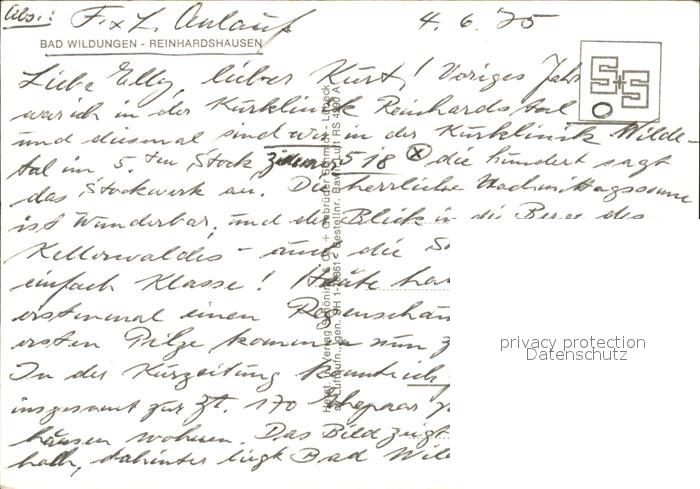 Abs.: F. x L. Anlauf 4.6.'75
BAD WILDUNGEN - REINHARDSHAUSEN
Liebe Elly, lieber Kurt! Voriges Jahr
war ich in der Kurklinik Reinhardstal
und diesmal sind wir in der Kurklinik Wilde-
tal im 5. ten Stock Zimmer 518 ⊗ die hundert sagt
das Stockwerk an. Die herrliche Nachmittagssonne
ist wunderbar, und der Blick in die Berge des
Kellerwaldes - auch die
einfach Klasse! Heute
erstenmal einen
ersten Pilze kommen nun
In der Kurzeitung
insgesamt zur Zt. 170 Ehepaar
häusen wohnen. Das Bild zeigt
halb, dahinter liegt Bad Wild
S+S
privacy protection
Datenschutz